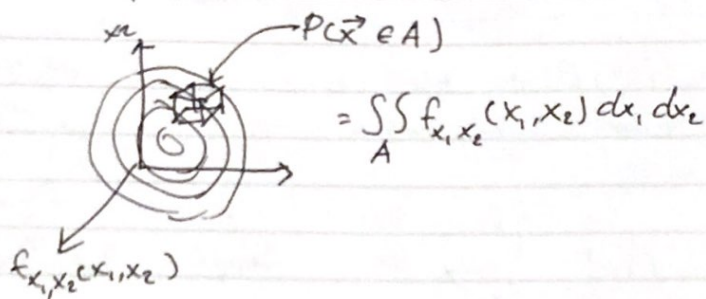 x2
P(x⃗ ∈ A)
= ∬_A f_{x_1 x_2}(x_1, x_2) dx_1 dx_2
f_{x_1, x_2}(x_1, x_2)